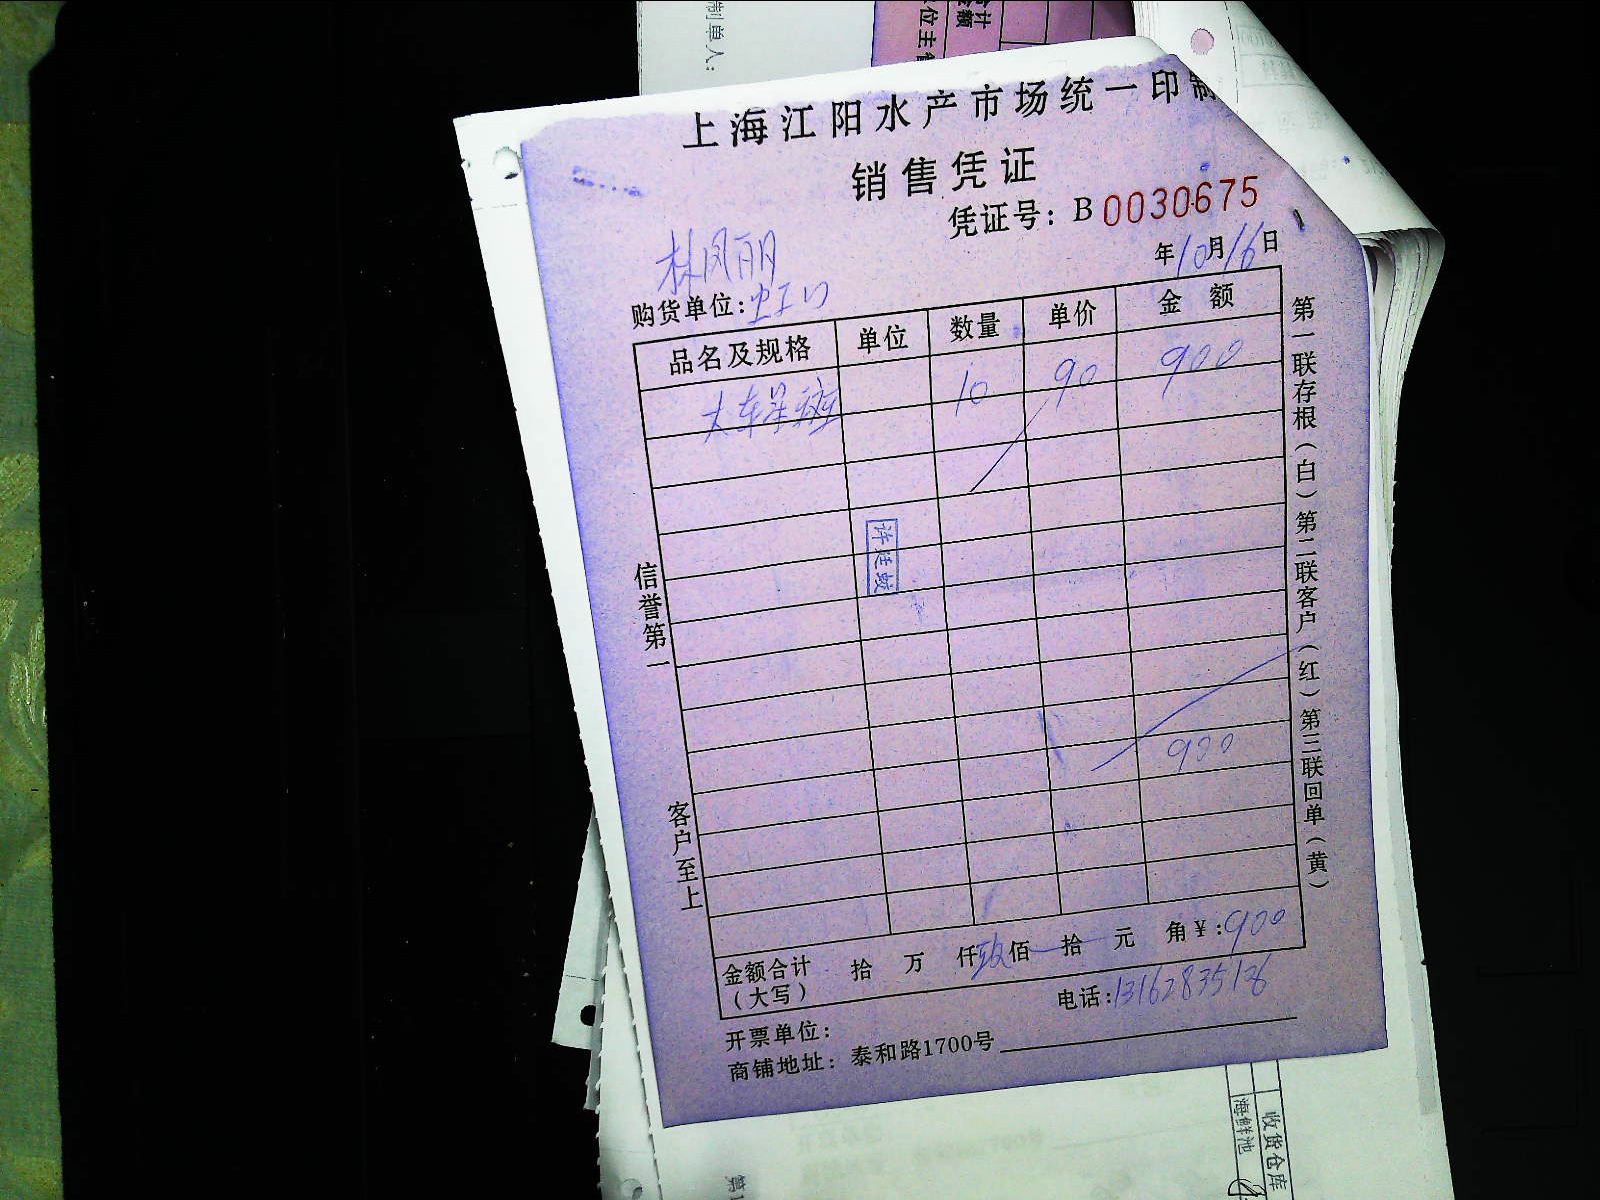 制单人:
上海江阳水产市场统一印制
销售凭证
凭证号: B 0030675
年10月16日
林凤丽
购货单位: 虹口
品名及规格 单位 数量 单价 金额
大东星斑 10 90 900
许廷蛟
900
信誉第一
客户至上
第一联存根(白) 第二联客户(红) 第三联回单(黄)
金额合计(大写) 拾 万 仟 玖佰 拾 元 角 ¥:900
电话:13162835136
开票单位:
商铺地址: 泰和路1700号
收货仓库
海鲜池